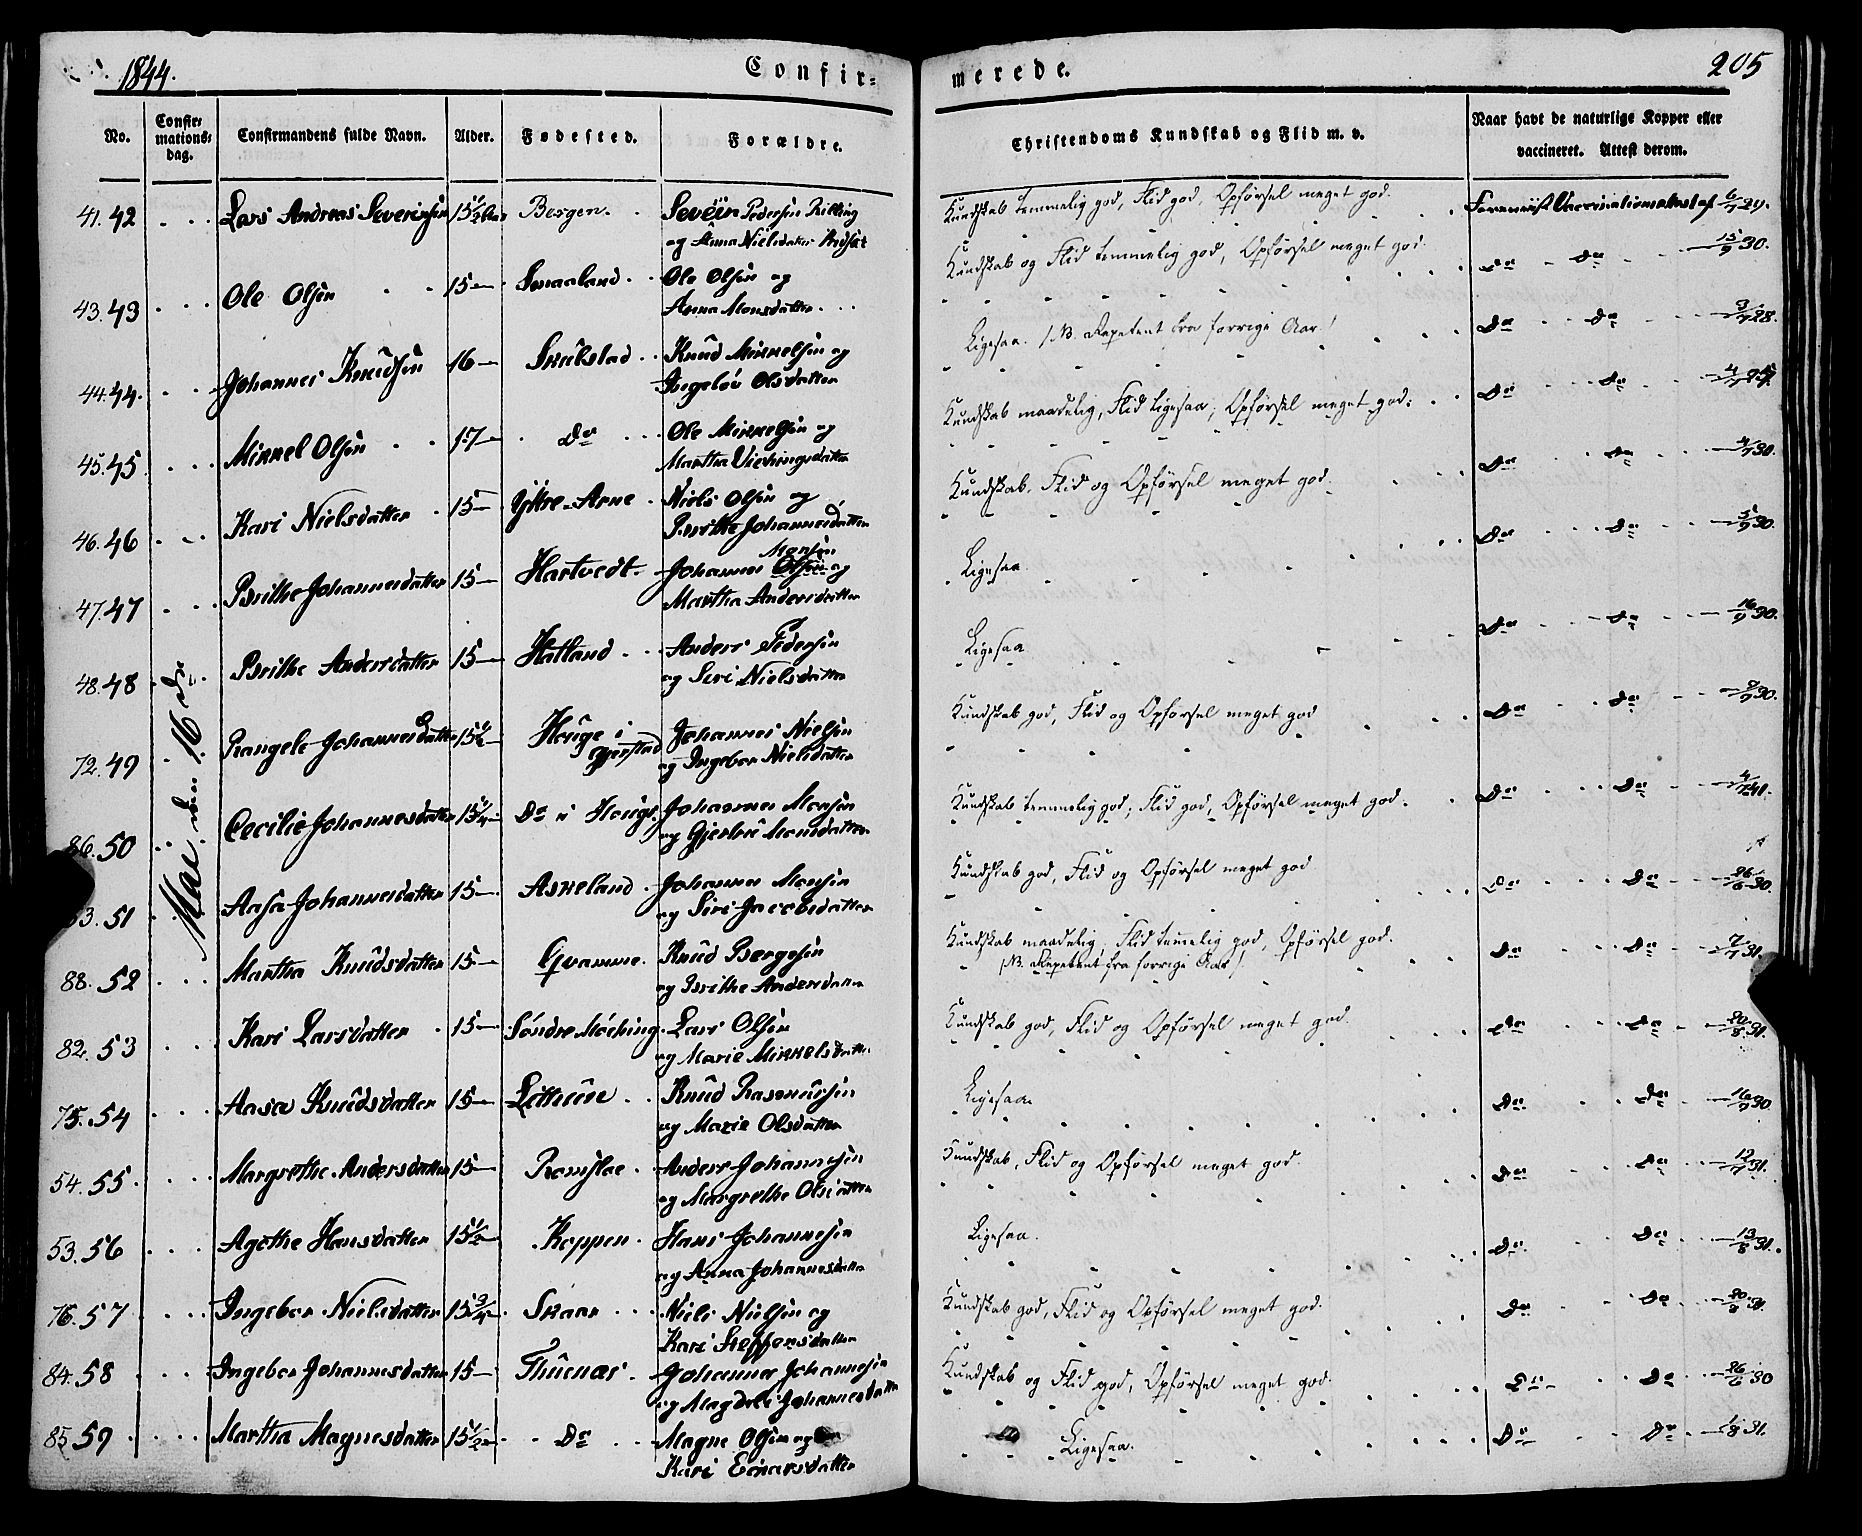 1844.
Confir-
merede.
205
No.
Confir-
mations-
dag.
Confirmandens fulde Navn.
Alder.
Fødested.
Forældre.
Christendoms Kundskab og Flid m. v.
Naar havt de naturlige Kopper eller
vaccineret. Attest derom.
Mai den 16de
41. 42 Lars Andreas Severinsen 15½ Aar Bergen. Severin Pedersen
og Anna Nielsdatter
Kundskab temmelig god, Flid god, Opførsel meget god.
Foreviist Vaccinationsattest af 6/7 29.
43. 43 Ole Olsen 15 Smaaland Ole Olsen og
Anna Monsdatter
Kundskab og Flid temmelig god, Opførsel meget god.
Do Do 15/9 30.
44. 44. Johannes Knudsen 16 Skulstad Knud Mikkelsen og
Ingeløv Olsdatter
Ligesaa. (NB. Repetent fra forrige Aar)
Do Do 3/7 28.
45. 45. Mikkel Olsen 17 Do Ole Mikkelsen og
Martha Vichingsdatter
Kundskab maadelig, Flid Ligesaa, Opførsel meget god.
Do Do
46. 46 Kari Nielsdatter 15 Yttre-Arne Niels Olsen og
Brithe Johannesdatter
Kundskab, Flid og Opførsel meget god.
Do Do 4/7 30.
47. 47 Brithe Johannesdatter 15 Hartvedt. Johannes Olsen og
Monsen
Martha Andersdatter
Ligesaa
Do Do 5/9 30.
48. 48 Brithe Andersdatter 15 Hatland Anders Pedersen
og Siri Nielsdatter
Ligesaa
Do Do 16/9 30.
72. 49 Rangele Johannesdatter 15½ Houge i
Gjerstad Johannes Nielsen
og Ingebor Nielsdatter
Kundskab god, Flid og Opførsel meget god
Do Do 30.
86. 50 Cecilie Johannesdatter 15¼ Do i Houge Johannes Monsen
og Gjertrü Monsdatter
Kundskab temmelig god, Flid god, Opførsel meget god.
Do Do 41.
51 Aasa Johannesdatter 15 Askeland Johannes Monsen
og Siri Jacobsdatter
Kundskab god, Flid og Opførsel meget god
Do Do 26/6 30.
88. 52 Martha Knudsdatter 15 Gvamme. Knud Børgesen
og Brithe Andersdatter
Kundskab maadelig, Flid temmelig god, Opførsel god.
(NB. Repetent fra forrige Aar)
Do Do 7/7 31.
82. 53 Kari Larsdatter 15 Søndre Møching Lars Olsen
og Marie Mikkelsdatter
Kundskab god, Flid og Opførsel meget god
Do Do 20/8 31.
75. 54 Aasa Knudsdatter 15 Knud Rasmussen
og Marie Olsdatter
Ligesaa
Do Do 16/9 30
54. 55. Margrethe Andersdatter 15 Romsloe Anders Johannesen
og Margrethe Olsdatter
Kundskab, Flid og Opførsel meget god.
Do Do 12/7 31.
53. 56 Agothe Hansdatter 15½ Koppen Hans Johannesen
og Anna Johannesdatter
Ligesaa.
Do Do 13/8 31.
76. 57 Ingebor Nielsdatter 15¾ Skaar Niels Nielsen og
Kari Steffensdatter
Kundskab god, Flid og Opførsel meget god.
Do Do 20/8 31.
84. 58 Ingebor Johannesdatter 15 Thuenæs Johannes Johannesen
og Magdeli Johannesdatter
Kundskab og Flid god, Opførsel meget god.
Do Do 26/6 30
85. 59 Martha Magnesdatter 15½ Do Magne Olsen og
Kari Einarsdatter
Ligesaa.
Do Do 1/8 31.